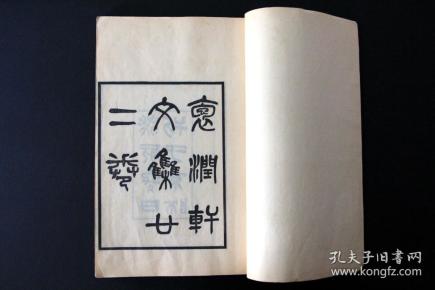 裒潤軒
文集廿
二卷
孔夫子旧书网
www.kongfz.com